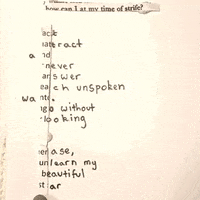 how can I at my time of strife?
act
attract
and
never
answer
each unspoken
want
go without
looking
erase,
unlearn my
beautiful
star